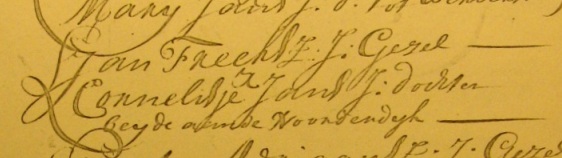 Mary Jans J. d. tot
Jan Freeks Z. J. Gezel
Cornelisje Jans J: dochter
beyde aende Noordendyk
Z. J. Gezel